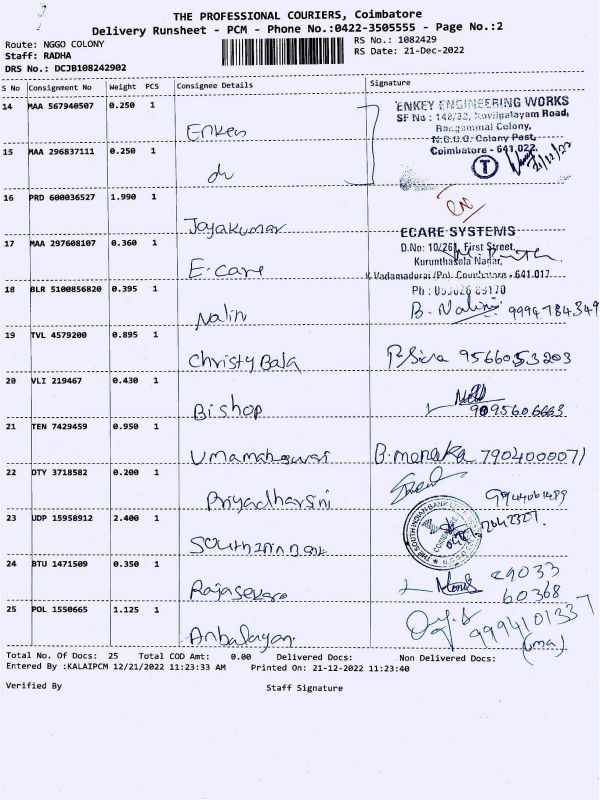 THE PROFESSIONAL COURIERS, Coimbatore
Delivery Runsheet - PCM - Phone No.:0422-3505555 - Page No.:2
Route: NGGO COLONY
RS No.: 1082429
Staff: RADHA
RS Date: 21-Dec-2022
DRS No.: DCJB108242902
S No Consignment No Weight PCS Consignee Details Signature
14 MAA 567940507 0.250 1
ENKEY ENGINEERING WORKS
SF No : 148/32, Kovilpalayam Road,
Rangammal Colony,
Enkey
N.G.G.O. Colony Post,
15 MAA 296837111 0.250 1
Coimbatore - 641 022.
T 21/12/22
do
16 PRD 600036527 1.990 1
Jayakumar
ECARE SYSTEMS
17 MAA 297608107 0.360 1
D.No: 10/26, First Street,
Kurunthasala Nagar,
E.care
K.Vadamadurai (Po), Coimbatore - 641 017
18 BLR 5100856820 0.395 1
Nalin
B. Nalini 9994784349
19 TVL 4579200 0.895 1
Christy Bala
P. Siva 9566053203
20 VLI 219467 0.430 1
Bishop
9095606663
21 TEN 7429459 0.950 1
Umamaheswari
B.menaka 7904000071
22 OTY 3718582 0.200 1
Priyadharsini
9944061489
23 UDP 15958912 2.400 1
THE SOUTH INDIAN BANK
South Ind Bank
24 BTU 1471509 0.350 1
Rajasekare
89033
60368
25 POL 1550665 1.125 1
Anbalagan
9994101337
(uma)
Total No. Of Docs: 25 Total COD Amt: 0.00 Delivered Docs: Non Delivered Docs:
Entered By :KALAIPCM 12/21/2022 11:23:33 AM Printed On: 21-12-2022 11:23:40
Verified By
Staff Signature